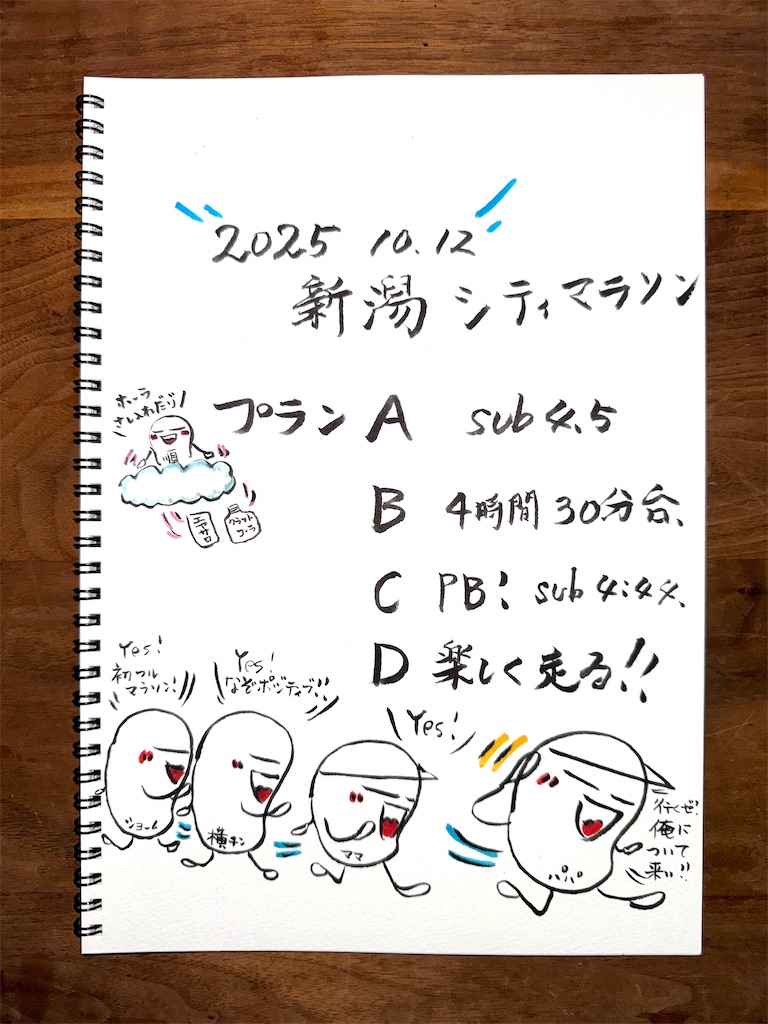 2025 10.12
新潟シティマラソン
プラン A sub 4.5
B 4時間30分台、
C PB! sub 4:44、
D 楽しく走る!!
ホーラ
さし入れだじ
順
エアサロ
クラフト
コーラ
Yes!
初フル
マラソン!
Yes!
なぞポジティブ!!
Yes!
行くぜ!
俺に
ついて
来い!!
ショーム
横チン
ママ
パパ